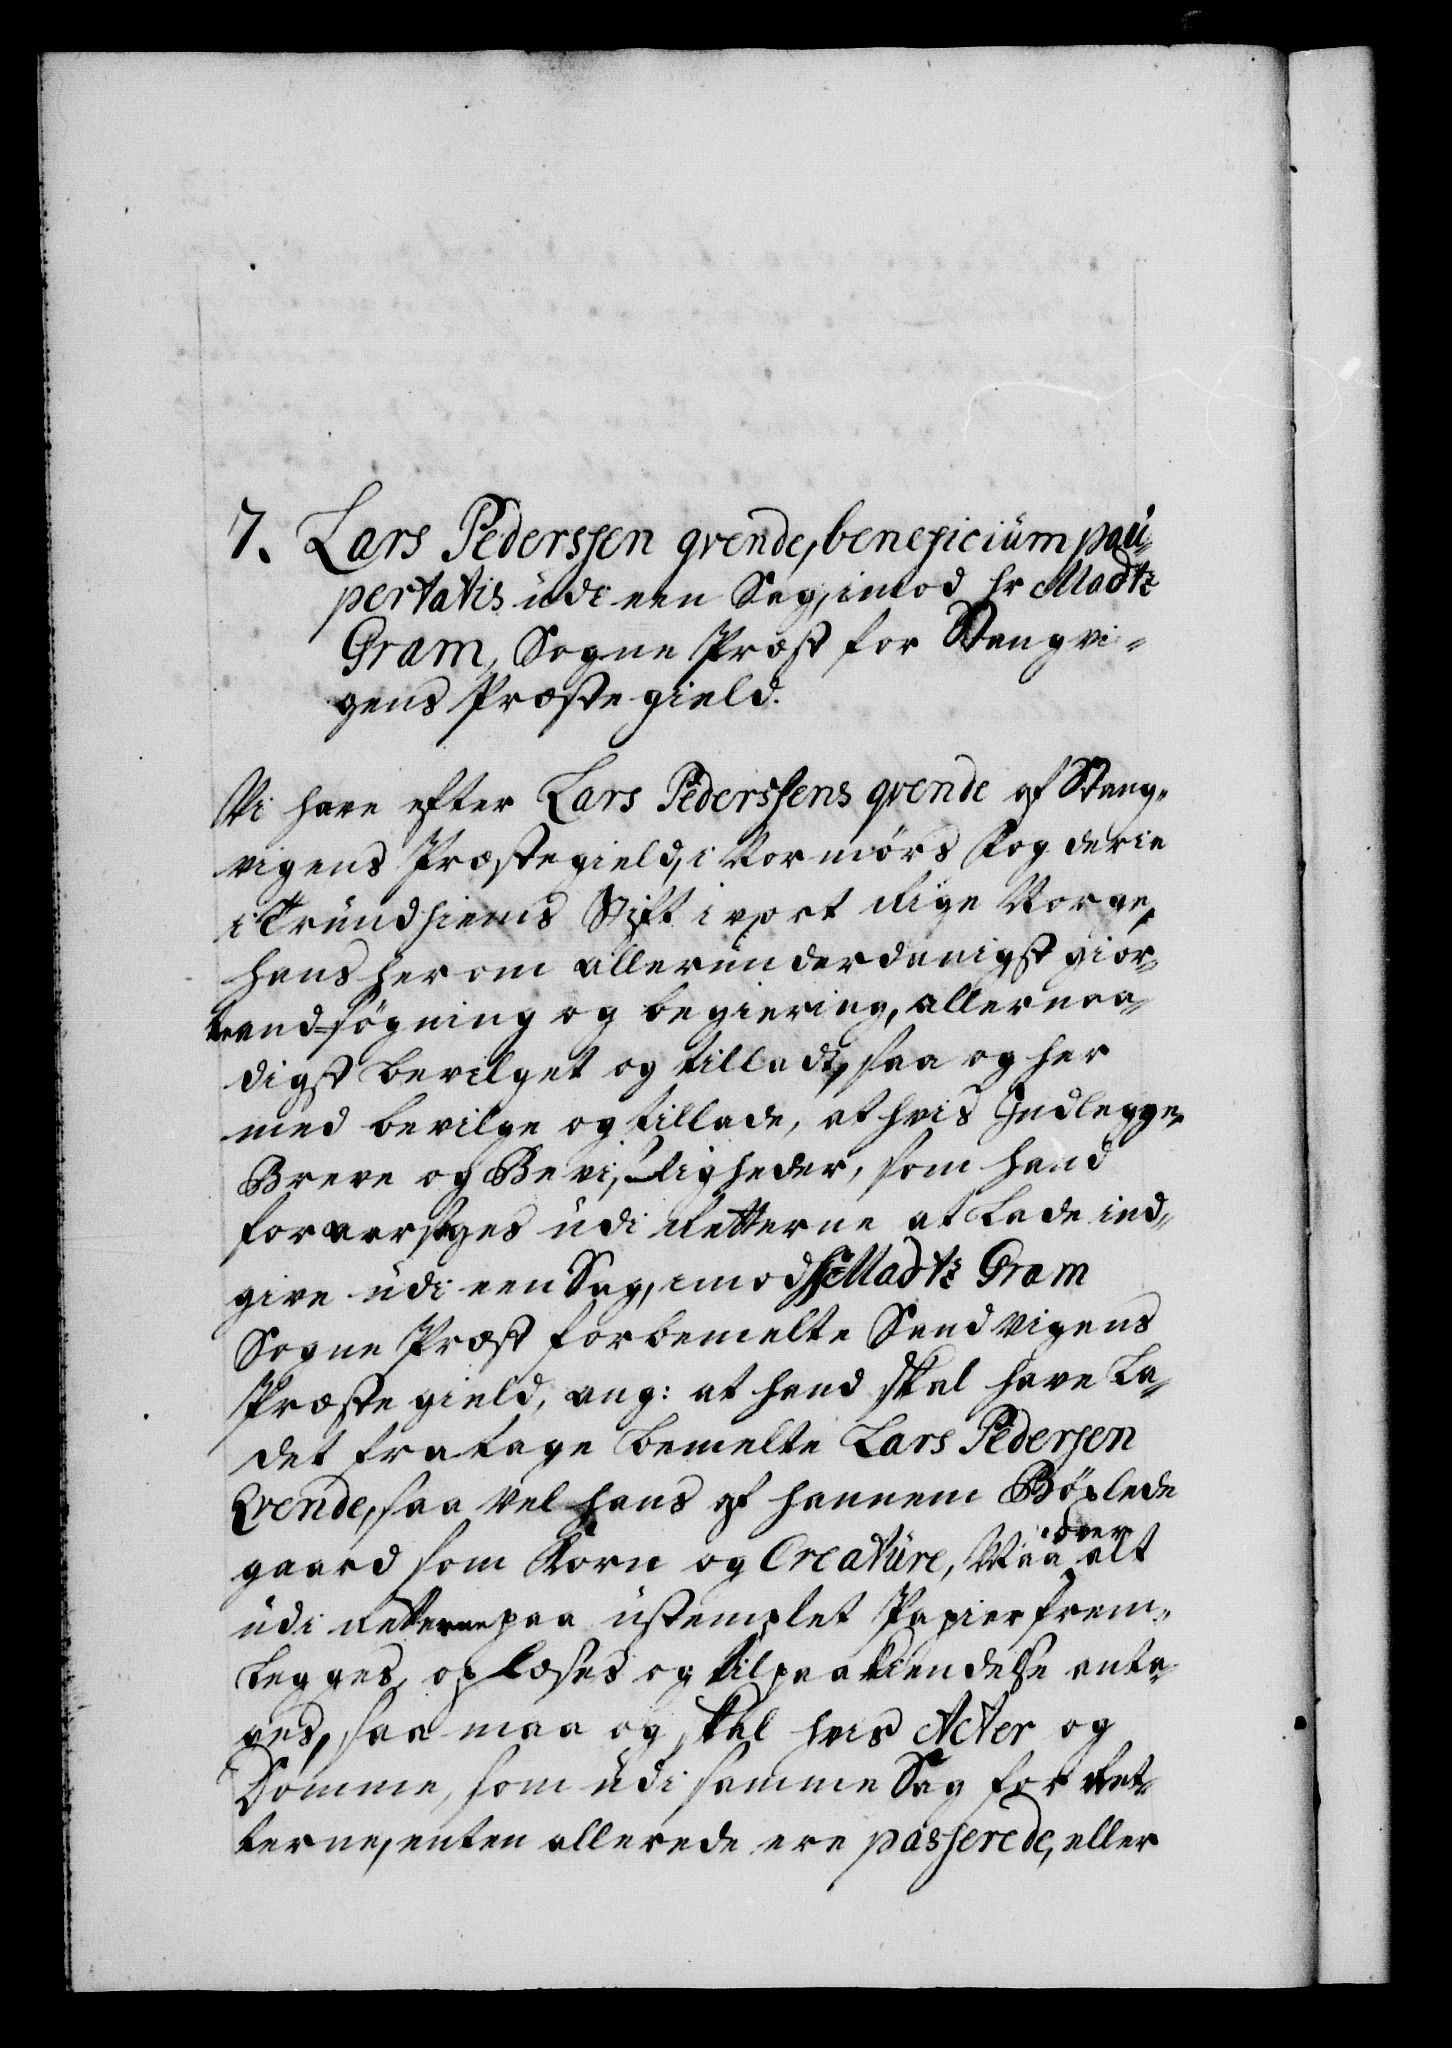 7. Lars Pederssen qvende, beneficium pau-
pertatis udi een Sag, imod hr Madtz
Gram, Sogne Præst for Stangvi-
gens Præstegield.
Vi have efter Lars Pederssens qvende af Stang-
vigens Præstegield, i Normørs Fogderie
i Trundhiems Stift i vort Rige Norge,
hans herom allerunderdanigst gior-
te andsøgning og begiering, allernaa-
digst bevilget og tilladt, saa og her
med bevilge og tillade, at hvis Indlegge,
Breve og Bevisligheder, som hand
foraarsages udi Retterne at lade ind-
give udi een Sag, imod hr Madtz Gram
Sogne Præst for bemelte Sandvigens
Præstegield, ang: at hand skal have la-
det fratage bemelte Lars Pedersen
Qvende, saa vel hans af hannem Böxlede
gaard som Korn og Creature, Maa over alt
udi Retterne paa ustemplet Papier frem-
legges, oplæses og til paakiendelse anta-
ges, saa maa og skal hvis Acter og
Domme, som udi samme Sag for Ret-
terne, enten allerede ere passerede, eller